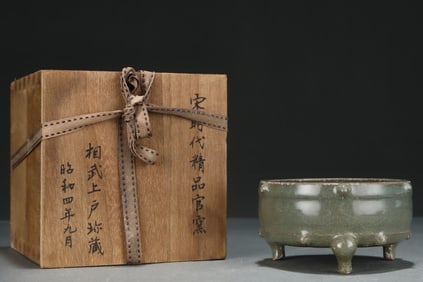 宋時代精品官窯
相武上戸珎蔵
昭和四年九月